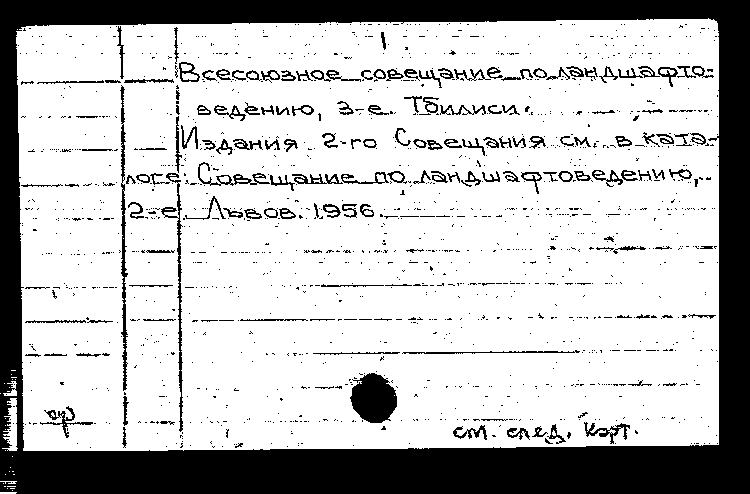 Всесоюзное совещание по ландшафто-
ведению, 3-е. Тбилиси.
Издания 2-го Совещания см. в ката-
логе: Совещание по ландшафтоведению,
2-е. Львов. 1956.
см. след. карт.